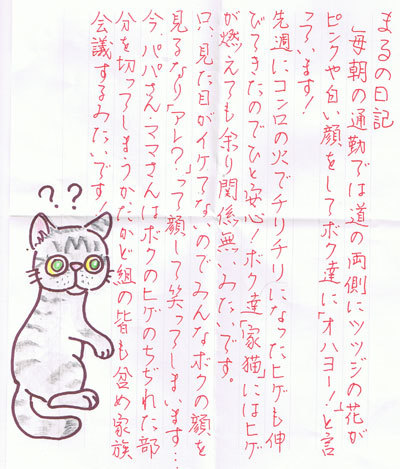 まるの日記
「毎朝の通勤では道の両側にツツジの花が
ピンクや白い顔をしてボク達に「オハヨー！」と言
っています！
先週にコンロの火でチリチリになったヒゲも伸
びてきたのでひと安心！ボク達「家猫」にはヒゲ
が燃えても余り関係無いみたいです。
只、見た目がイケてないのでみんなボクの顔を
見るなり「アレ？」って顔して笑ってしまいます…
今、パパさん・ママさんはボクのヒゲのちぢれた部
分を切ってしまうかたかど組の皆も含め家族
会議するみたいです！
？？